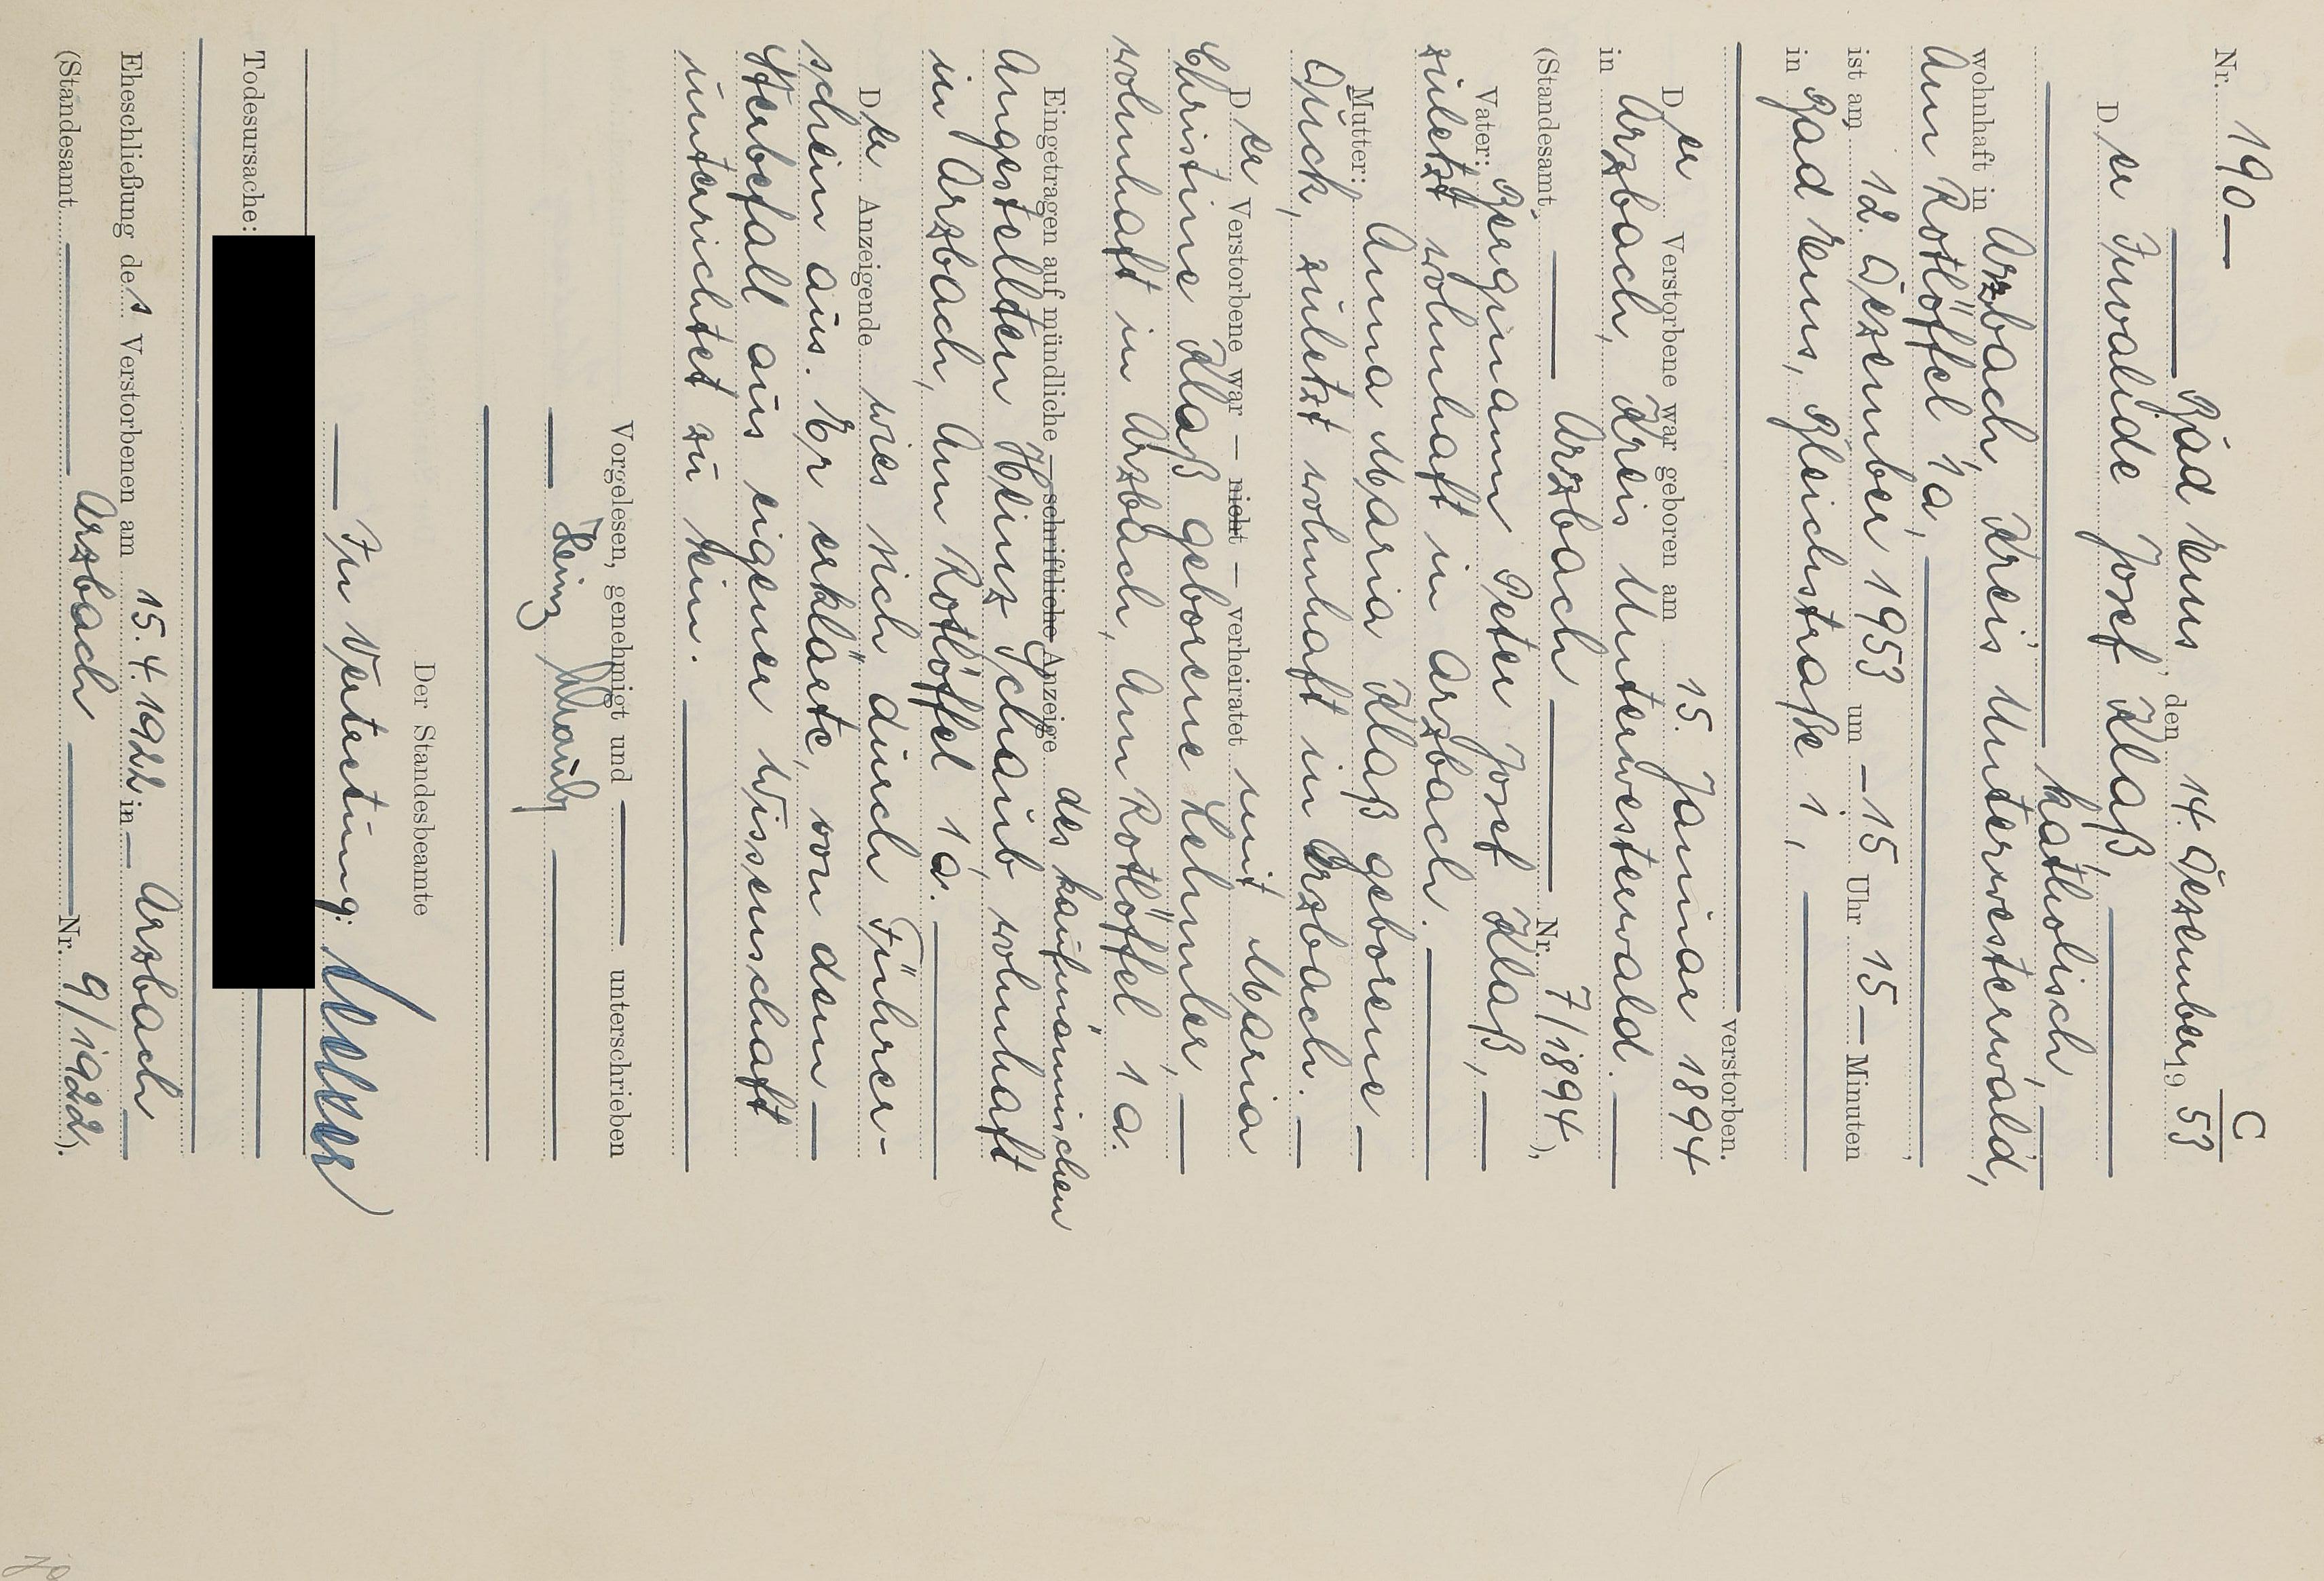 C
Nr. 190 —
Bad Ems, den 14. Dezember 19 53
Der Invalide Josef Klaß
katholisch,
wohnhaft in Arzbach, Kreis Unterwesterwald,
Am Rotlöffel 1a,
ist am 12. Dezember 1953 um — 15 Uhr 15 — Minuten
in Bad Ems, Bleichstraße 1,
verstorben.
Der Verstorbene war geboren am 15. Januar 1894
in Arzbach, Kreis Unterwesterwald.
(Standesamt Arzbach Nr. 7/1894),
Vater: Bergmann Peter Josef Klaß,
zuletzt wohnhaft in Arzbach.
Mutter: Anna Maria Klaß geborene
Duck, zuletzt wohnhaft in Arzbach.
Der Verstorbene war — nicht — verheiratet mit Maria
Christine Klaß geborene Lehmler,
wohnhaft in Arzbach, Am Rotlöffel 1a.
Eingetragen auf mündliche — schriftliche Anzeige des kaufmännischen
Angestellten Heinz Schaub wohnhaft
in Arzbach, Am Rotlöffel 1a.
Der Anzeigende wies sich durch Führer-
schein aus. Er erklärte, von dem
Sterbefall aus eigener Wissenschaft
unterrichtet zu sein.
Vorgelesen, genehmigt und unterschrieben
Heinz Schaub
Der Standesbeamte
In Vertretung:
Todesursache:
Eheschließung des Verstorbenen am 15.4.1922 in Arzbach
(Standesamt Arzbach Nr. 9/1922).